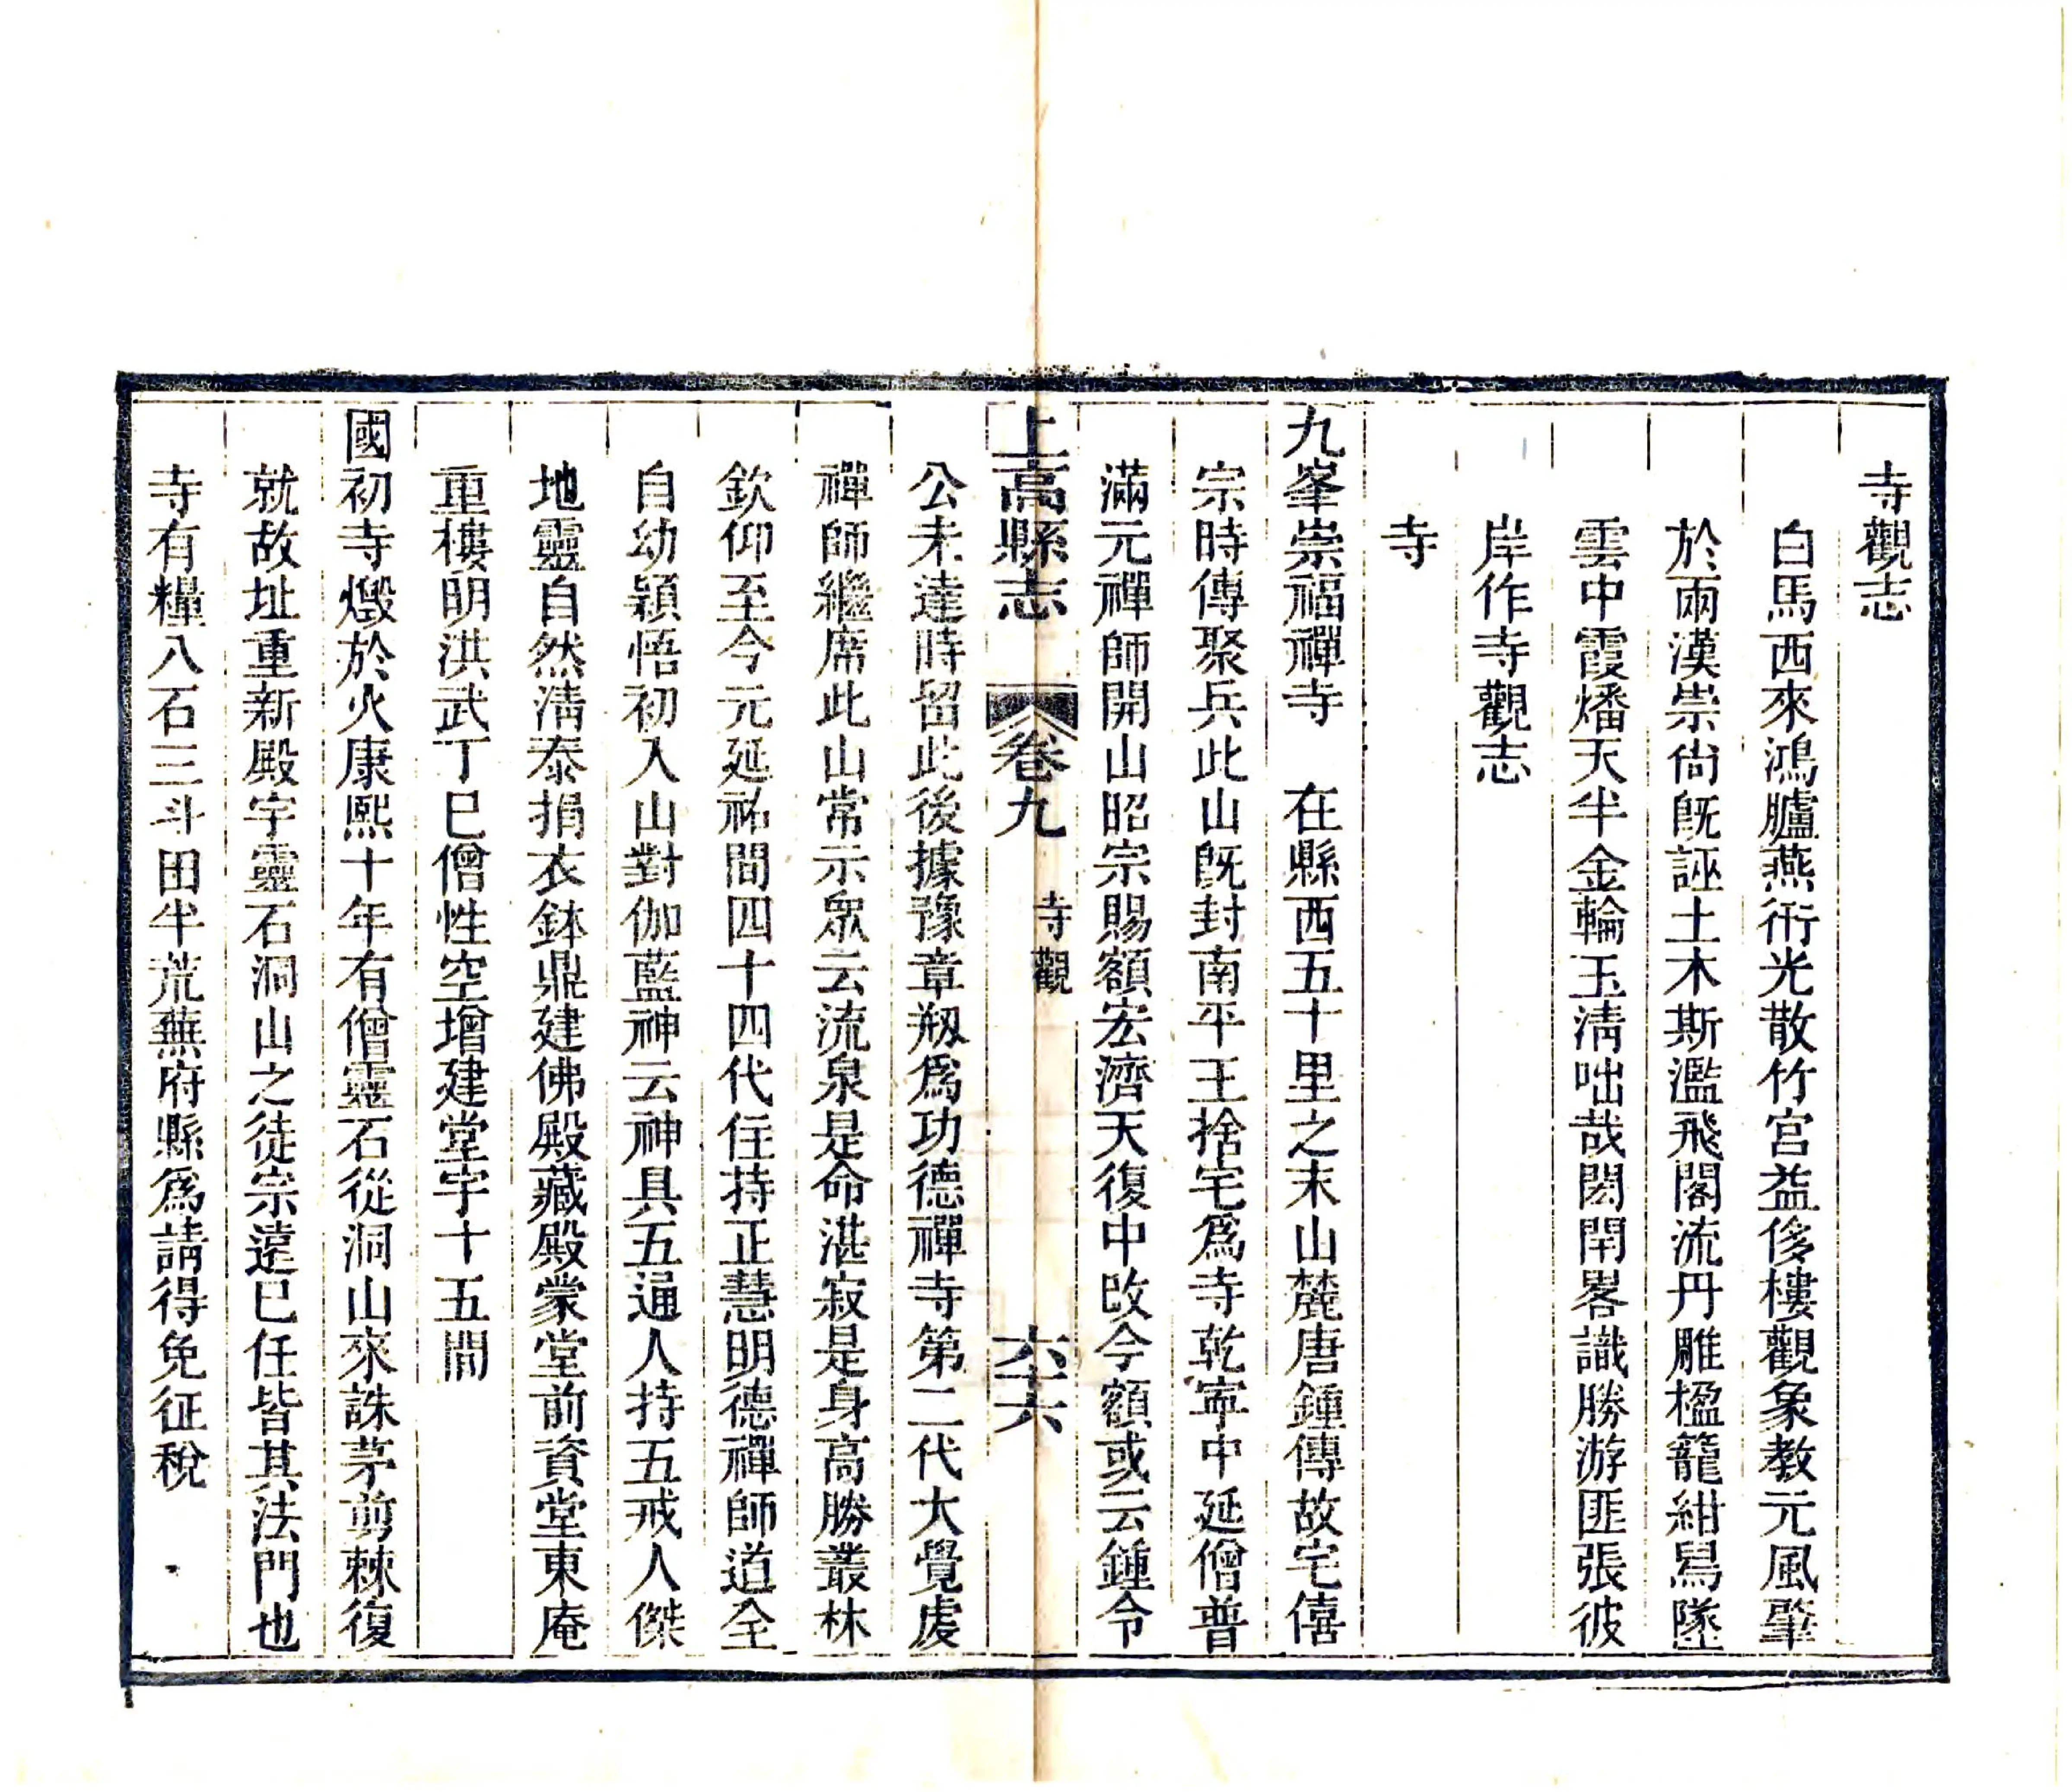 寺觀志
白馬西來鴻臚燕衎光散竹宮益侈樓觀象教元風肇
於兩漢崇尙旣誣土木斯濫飛閣流丹雕楹籠紺舄墜
雲中霞燔天半金輪玉淸咄哉閎閈畧識勝游匪張彼
岸作寺觀志
寺
九峯崇福禪寺 在縣西五十里之末山麓唐鍾傳故宅僖
宗時傳聚兵此山旣封南平王捨宅爲寺乾寧中延僧普
滿元禪師開山昭宗賜額宏濟天復中改今額或云鍾令
上高縣志 卷九 寺觀 六十六
公未達時畱此後據豫章剏爲功德禪寺第二代大覺虔
禪師繼席此山常示衆云流泉是命湛寂是身高勝叢林
欽仰至今元延祐間四十四代住持正慧明德禪師道全
自幼穎悟初入山對伽藍神云神具五通人持五戒人傑
地靈自然淸泰捐衣鉢鼎建佛殿藏殿蒙堂前資堂東庵
重樓明洪武丁巳僧性空增建堂宇十五間
國初寺燬於火康熙十年有僧靈石從洞山來誅茅剪棘復
就故址重新殿宇靈石洞山之徒宗遠已任皆其法門也
寺有糧八石三斗田半荒蕪府縣爲請得免征稅